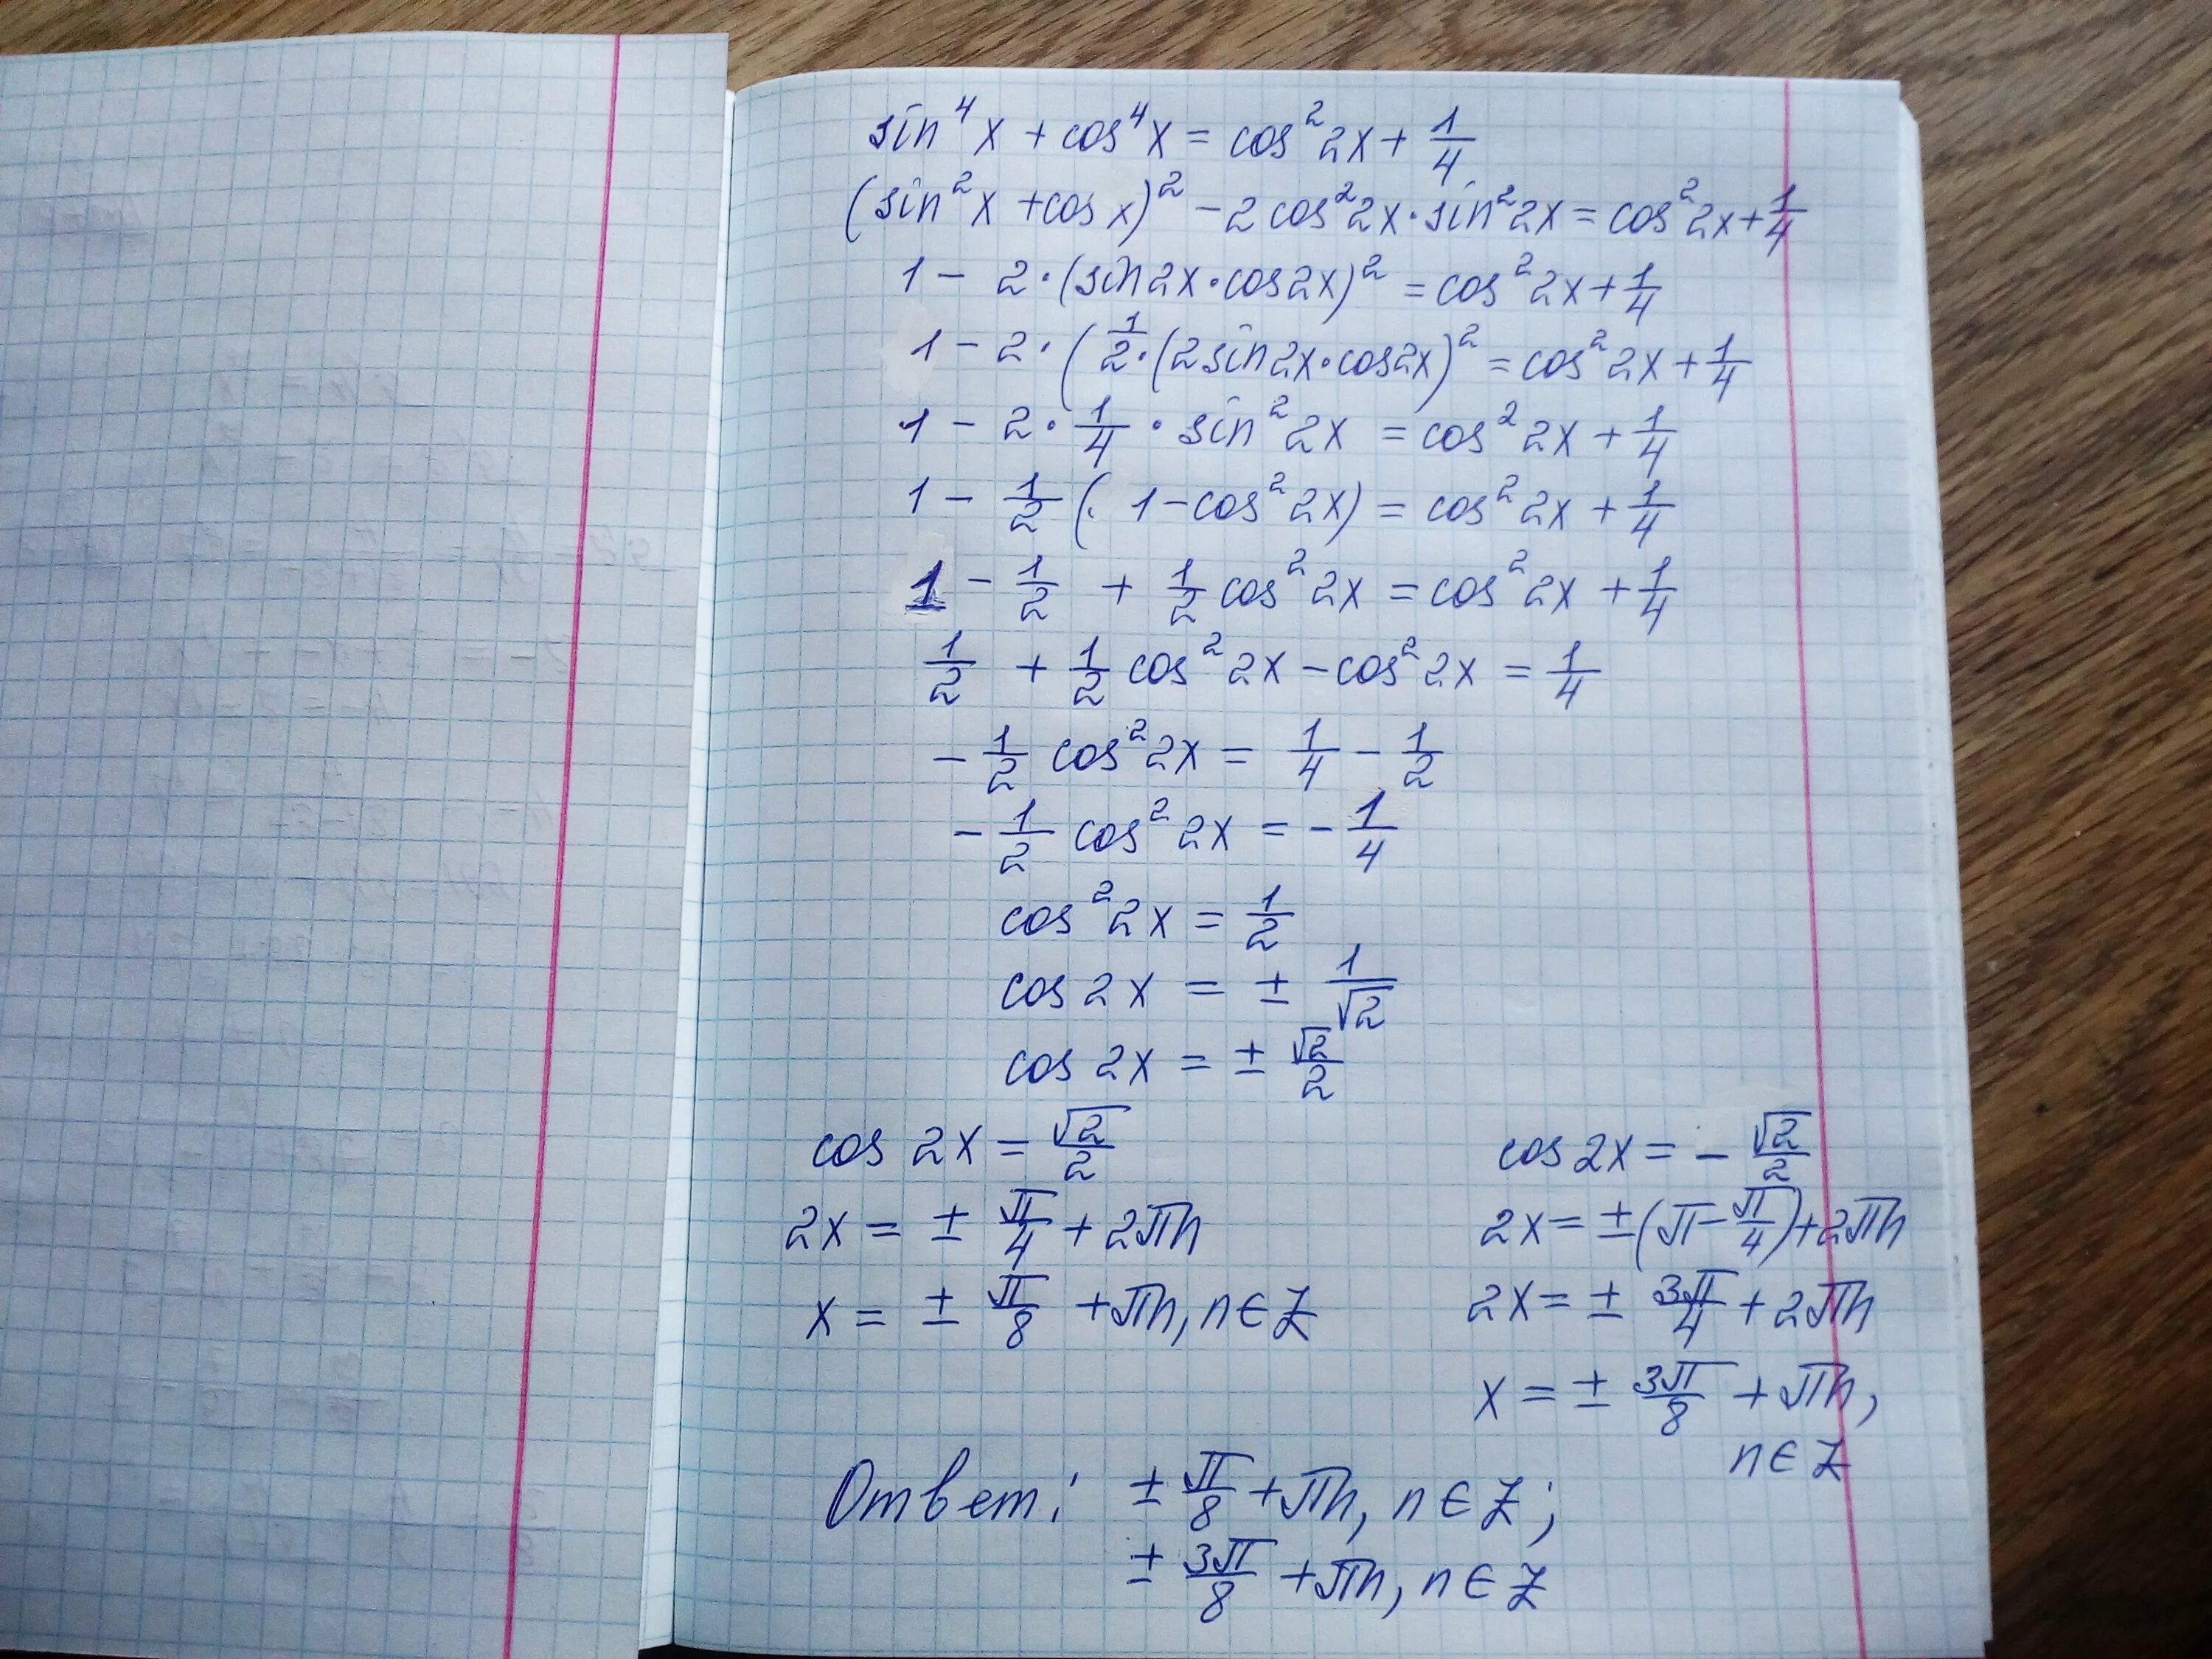 sin⁴x + cos⁴x = cos²2x + 1/4
(sin²x + cos x)² - 2cos²2x · sin²2x = cos²2x + 1/4
1 - 2·(sin2x·cos2x)² = cos²2x + 1/4
1 - 2·(1/2·(2sin2x·cos2x)² = cos²2x + 1/4
1 - 2·1/4·sin²2x = cos²2x + 1/4
1 - 1/2(1-cos²2x) = cos²2x + 1/4
1 - 1/2 + 1/2 cos²2x = cos²2x + 1/4
1/2 + 1/2 cos²2x - cos²2x = 1/4
- 1/2 cos²2x = 1/4 - 1/2
- 1/2 cos²2x = - 1/4
cos²2x = 1/2
cos 2x = ± 1/√2
cos 2x = ± √2/2
cos 2x = √2/2
2x = ± π/4 + 2πn
x = ± π/8 + πn, n∈Z
cos 2x = - √2/2
2x = ±(π - π/4) + 2πn
2x = ± 3π/4 + 2πn
x = ± 3π/8 + πn,
n∈Z
Ответ: ± π/8 + πn, n∈Z;
± 3π/8 + πn, n∈Z